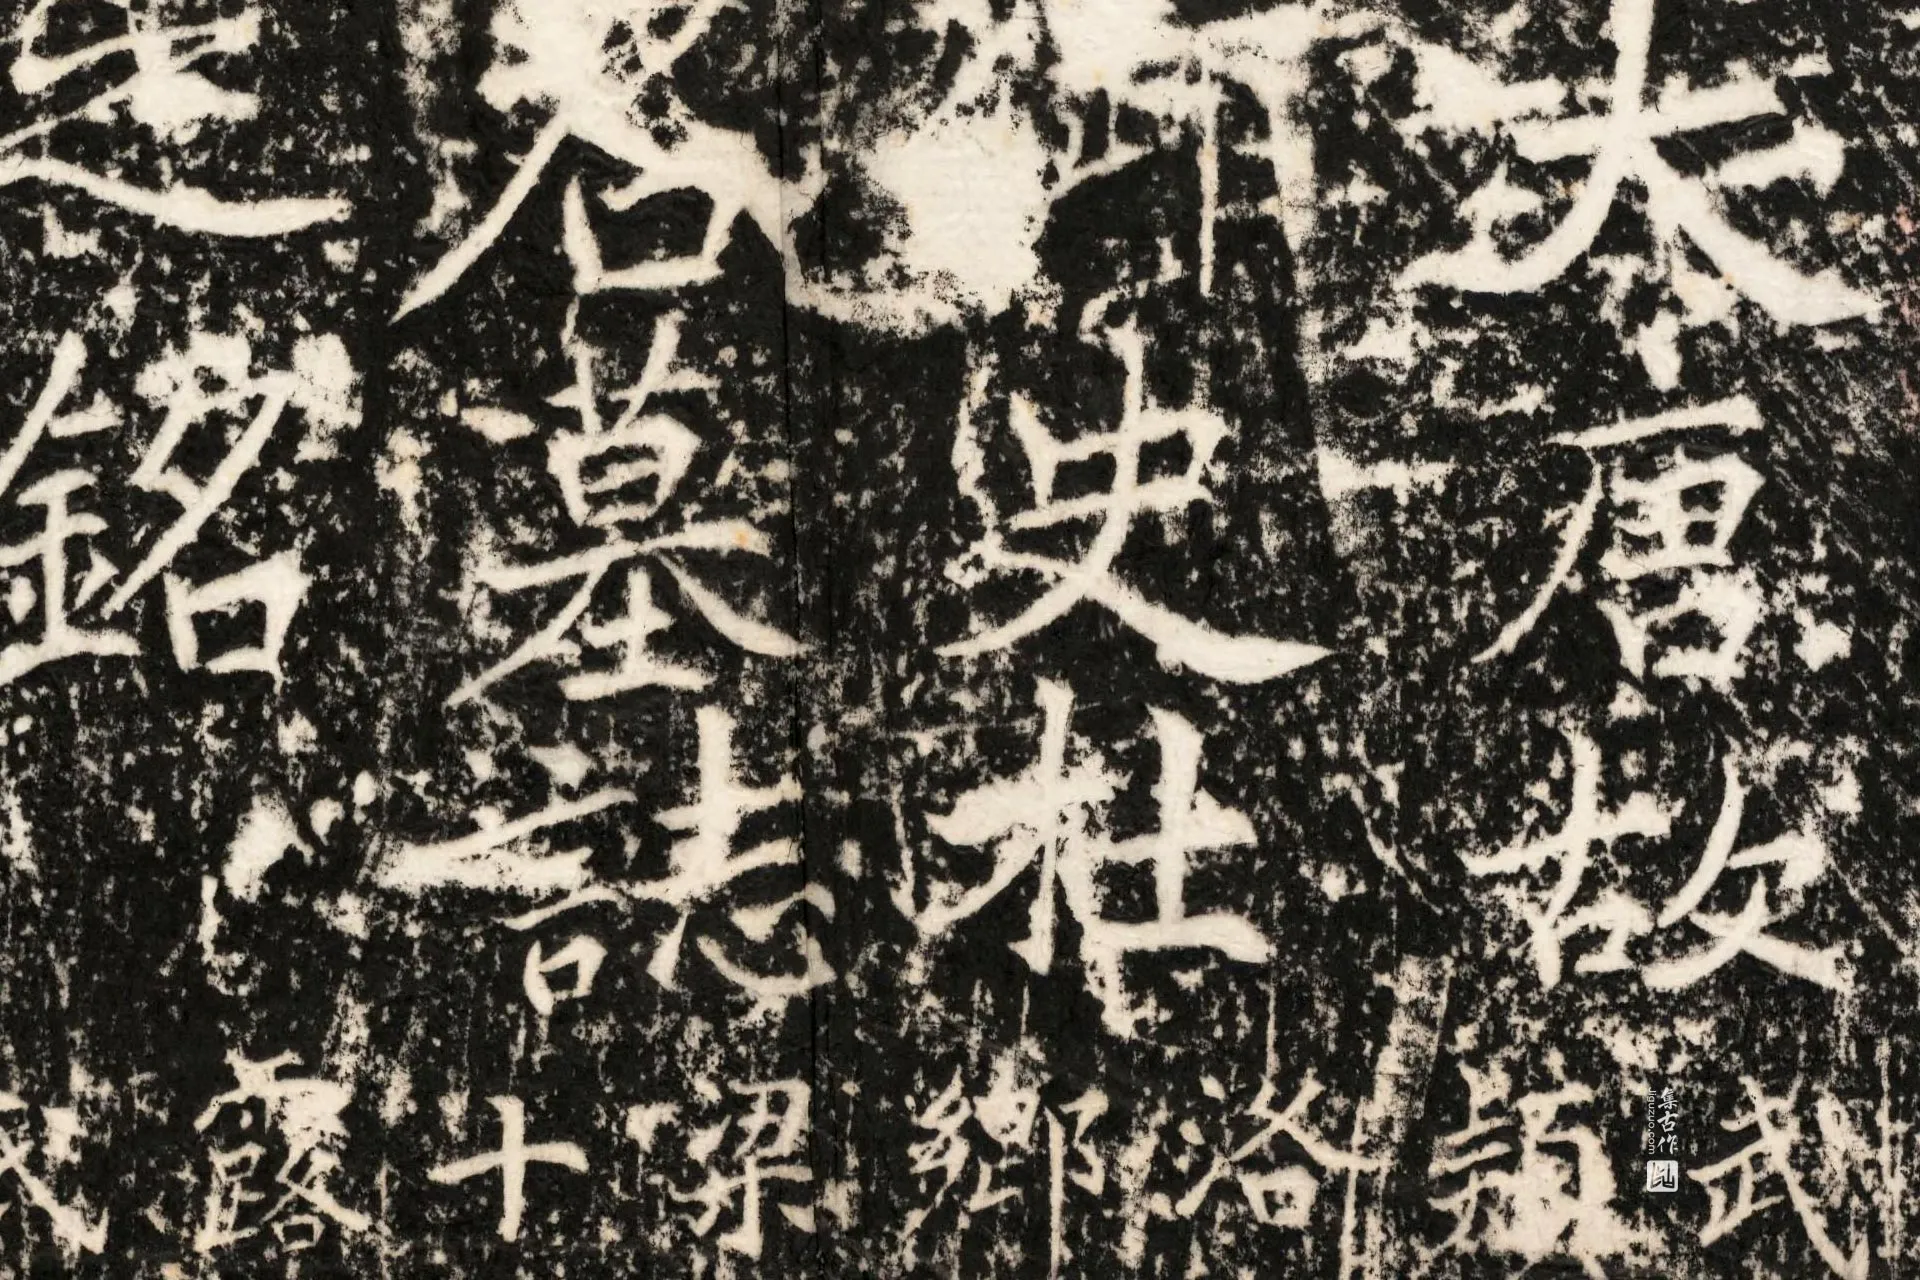 大唐故
史杜
君墓誌
銘
武
穎
洛
鄉
梁
十
露
集古作
jiguzuo.com